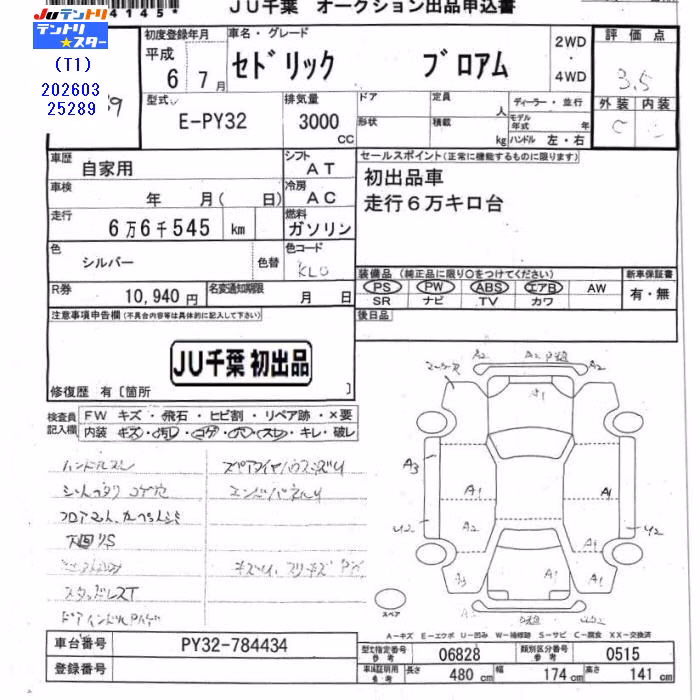 4145*
JU千葉 オークション出品申込書
JUテントリ
テントリ★スター
(T1)
202603
25289
初度登録年月
平成
6年7月
車名・グレード
セドリック ブロアム
2WD
・
4WD
評価点
3.5
外装 内装
C C
型式
E-PY32
排気量
3000 CC
ドア
形状
定員 人
積載 kg
ディーラー・並行
モデル年式 年
ハンドル 左・右
車歴
自家用
シフト
AT
車検 年 月( 日)
冷房
AC
走行
6万6千545 km
燃料
ガソリン
色
シルバー
色替
色コード
KL0
R券
10,940円
名変通知期限 月 日
セールスポイント(正常に機能するものに限ります)
初出品車
走行6万キロ台
装備品(純正品に限り○をつけてください)
新車保証書
PS PW ABS エアB AW
SR ナビ TV カワ
有・無
注意事項申告欄(不具合内容等は具体的に記入して下さい)
後日品
JU千葉 初出品
修復歴 有〔箇所 〕
検査員記入欄
FW キズ・飛石・ヒビ割・リペア跡・×要
内装 キズ・汚レ・コゲ・穴・スレ・キレ・破レ
ハンドルスレ
A2 A2 A2
A1
A3 A1 A1
U2 A2 A1 U2
A3 A1 A1
スペア
A-キズ E-エクボ U-凹み W-補修跡 S-サビ C-腐食 XX-交換済
車台番号
PY32-784434
登録番号
型式指定番号 参考
06828
類別区分番号 参考
0515
車両証明用 参考
長さ 480 cm
幅 174 cm
高さ 141 cm